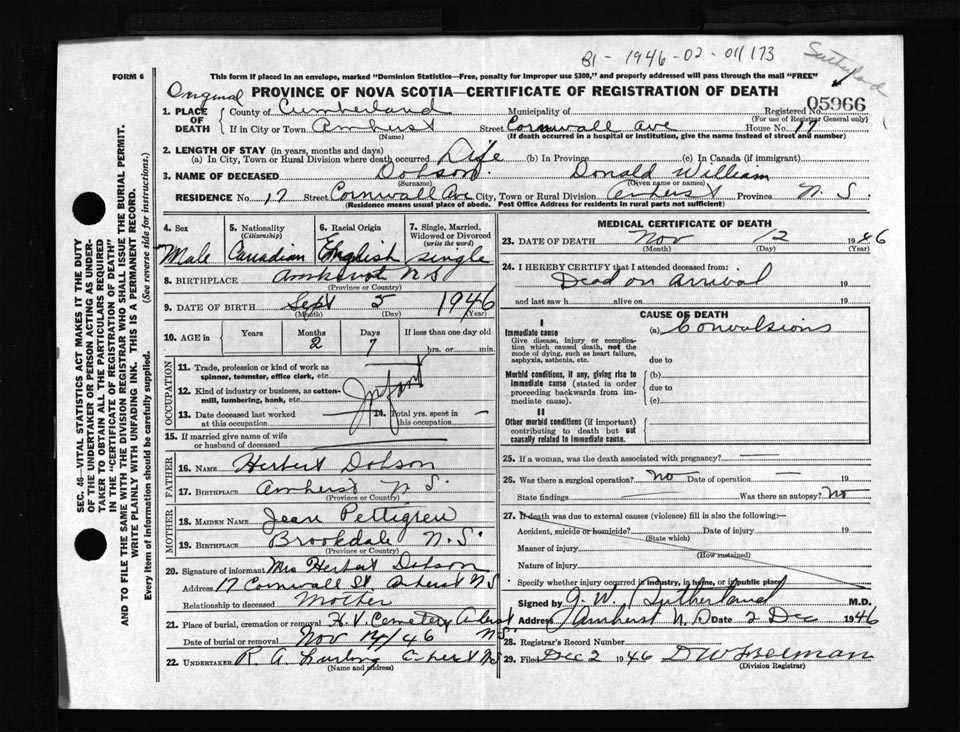 B1-1946-02-011173
Sutherland
FORM 6
This form if placed in an envelope, marked "Dominion Statistics—Free, penalty for improper use $300," and properly addressed will pass through the mail "FREE"
Original
PROVINCE OF NOVA SCOTIA—CERTIFICATE OF REGISTRATION OF DEATH
05966
1. PLACE OF DEATH
County of Cumberland Municipality of Registered No.
(For use of Registrar General only)
If in City or Town Amherst Street Cornwall Ave House No. 17
(Name) (If death occurred in a hospital or institution, give the name instead of street and number)
2. LENGTH OF STAY (in years, months and days)
(a) In City, Town or Rural Division where death occurred Life (b) In Province (c) In Canada (if immigrant)
3. NAME OF DECEASED Dobson Donald William
(Surname) (Given name or names)
RESIDENCE No. 17 Street Cornwall Ave City, Town or Rural Division Amherst Province N. S.
(Residence means usual place of abode. Post Office Address for residents in rural parts not sufficient)
4. Sex 5. Nationality (Citizenship) 6. Racial Origin 7. Single, Married, Widowed or Divorced (write the word)
Male Canadian English single
8. BIRTHPLACE Amherst N S
(Province or Country)
9. DATE OF BIRTH Sept 5 1946
(Month) (Day) (Year)
10. AGE in Years Months Days If less than one day old
2 7 hrs. or min.
OCCUPATION
11. Trade, profession or kind of work as spinner, teamster, office clerk, etc.
12. Kind of industry or business, as cotton-mill, lumbering, bank, etc.
Infant
13. Date deceased last worked at this occupation 14. Total yrs. spent in this occupation
15. If married give name of wife or husband of deceased
FATHER
16. NAME Herbert Dobson
17. BIRTHPLACE Amherst N. S.
(Province or Country)
MOTHER
18. MAIDEN NAME Jean Pettigrew
19. BIRTHPLACE Brookdale N. S.
(Province or Country)
20. Signature of informant Mrs Herbert Dobson
Address 17 Cornwall St. Amherst N S
Relationship to deceased Mother
21. Place of burial, cremation or removal H. V. Cemetery Amherst
Date of burial or removal Nov 14/46 NS
22. UNDERTAKER R. A. Amherst NS
(Name and address)
MEDICAL CERTIFICATE OF DEATH
23. DATE OF DEATH Nov 12 1946
(Month) (Day) (Year)
24. I HEREBY CERTIFY that I attended deceased from:
Dead on arrival 19
and last saw h alive on 19
CAUSE OF DEATH
I
Immediate cause (a) Convulsions
Give disease, injury or complication which caused death, not the mode of dying, such as heart failure, asphyxia, asthenia, etc.
due to
Morbid conditions, if any, giving rise to immediate cause (stated in order proceeding backwards from immediate cause).
(b)
due to
(c)
II
Other morbid conditions (if important) contributing to death but not causally related to immediate cause.
25. If a woman, was the death associated with pregnancy?
26. Was there a surgical operation? No Date of operation 19
State findings Was there an autopsy? No
27. If death was due to external causes (violence) fill in also the following:—
Accident, suicide or homicide? Date of injury 19
(State which)
Manner of injury
(How sustained)
Nature of injury
Specify whether injury occurred in industry, in home, or in public place
Signed by J. W. Sutherland M.D.
Address Amherst N. S Date 2 Dec 1946
28. Registrar's Record Number
29. Filed Dec 2 1946 D W Freeman
(Division Registrar)
SEC. 46—VITAL STATISTICS ACT MAKES IT THE DUTY
OF THE UNDERTAKER OR PERSON ACTING AS UNDER-
TAKER TO OBTAIN ALL THE PARTICULARS REQUIRED
IN THE "CERTIFICATE OF REGISTRATION OF DEATH"
AND TO FILE THE SAME WITH THE DIVISION REGISTRAR WHO SHALL ISSUE THE BURIAL PERMIT.
WRITE PLAINLY WITH UNFADING INK. THIS IS A PERMANENT RECORD.
Every item of information should be carefully supplied. (See reverse side for instructions.)